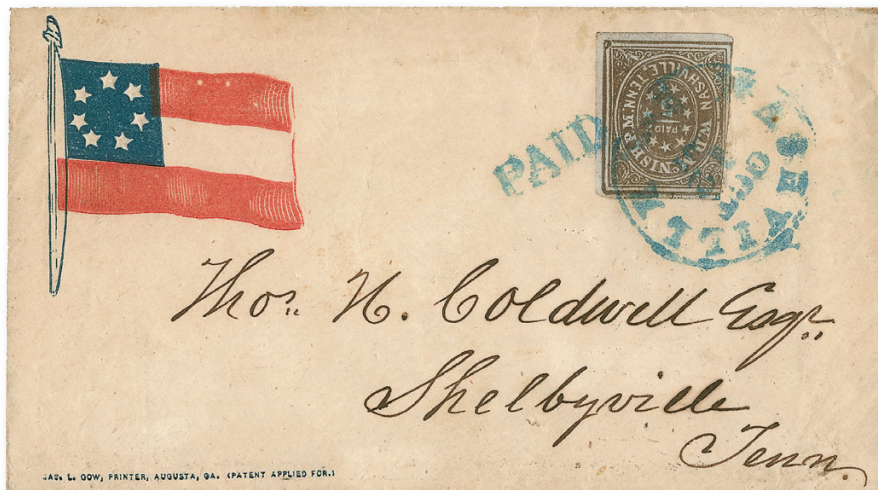 W.D. McNISH P.M. NASHVILLE, TENN.
PAID
5
PAID
NASHVILLE
Thos. H. Coldwell Esqr.
Shelbyville
Tenn.
JAS. L. GOW, PRINTER, AUGUSTA, GA. (PATENT APPLIED FOR.)